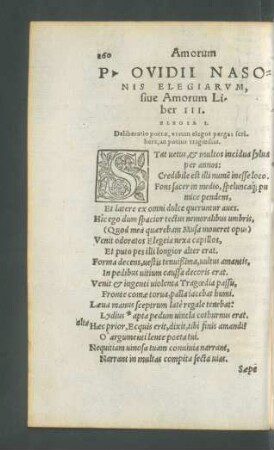 260 Amorum
P. OVIDII NASO-
NIS ELEGIARVM,
siue Amorum Li-
ber III.
ELEGIA I.
Deliberatio poetæ, vtrum elegos pergat scri-
bere, an potius tragœdias.
STat uetus, & multos incidua sylua
per annos:
Credibile est illi numē inesse loco.
Fons sacer in medio, speluncaq; pu
mice pendens,
Et latere ex omni dulce queruntur aues.
Hic ego dum spacior tectus nemoralibus umbris,
(Quod mea quærebam Musa moneret opus)
Venit odoratos Elegeia nexa capillos,
Et puto pes illi longior alter erat.
Forma decens, uestis tenuissima, uultus amantis,
In pedibus uitium caussa decoris erat.
Venit & ingenti uiolenta Tragœdia passu,
Fronte comæ torua, palla iacebat humi.
Læua manus sceptrum late regale tenebat:
Lydius * apta pedum uincla cothurnus erat.
alta Hæc prior, Ecquis erit, dixit, tibi finis amandi?
O argumenti lente poeta tui.
Nequitiam uinosa tuam conuiuia narrant,
Narrant in multas compita secta uias.
Sæpe